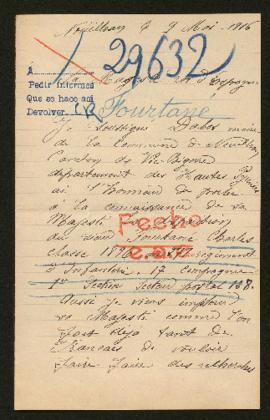 Nouilhan le 9 Mai 1916
29632
À
Pedir informes
Que se hace así
Devolver
Sa Majesté Roi d'Espagne
Fourtané
Je soussigné Dabes maire
de la Commune de Nouilhan
Canton de Vic-Bigorre
département des Hautes Pyrénées
ai l'honneur de porter
à la connaissance de sa
Majesté la disparition
du nommé Fourtané Charles
Fecho
classe
régiment
d'Infanterie 17 Compagnie
1re Section Secteur postal 138.
Aussi je viens implorer
sa Majesté comme l'on
fait déjà tant de
Français de vouloir
faire faire des recherches